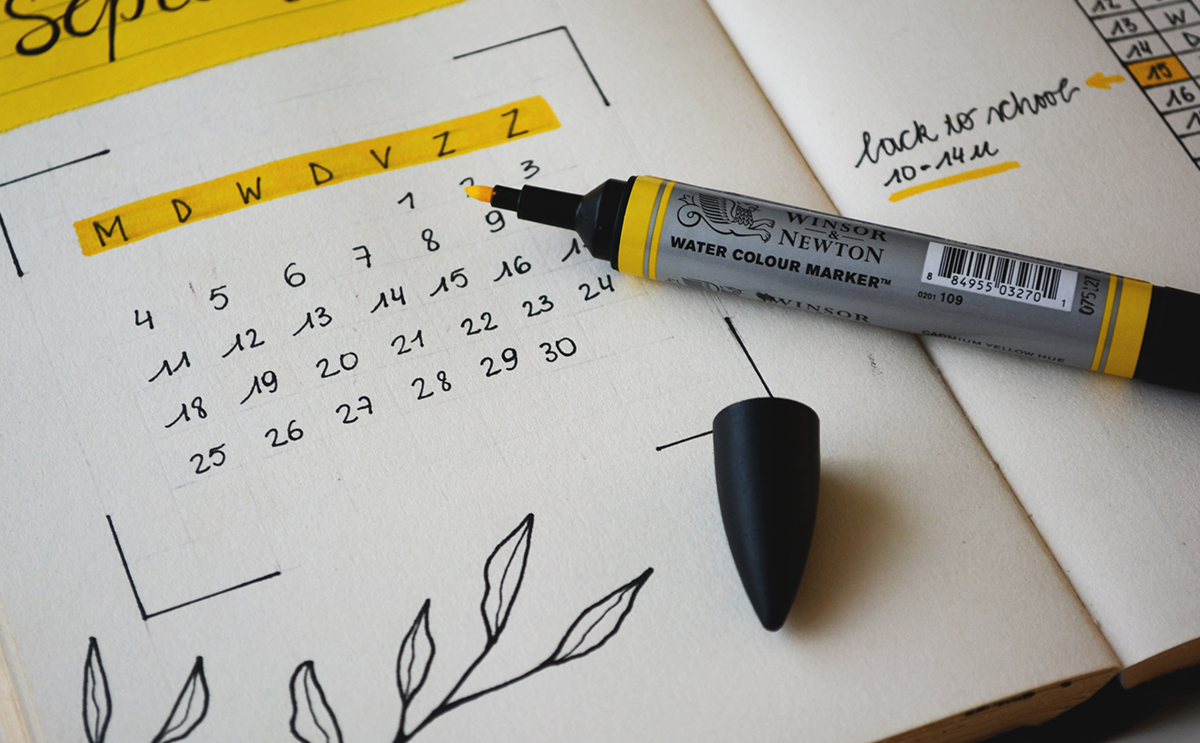 Sept
M D W D V Z Z
1 2 3
4 5 6 7 8 9
11 12 13 14 15 16
18 19 20 21 22 23 24
25 26 27 28 29 30
12
13 W
14 D
15
16
back to school
10-14u
WINSOR
&
NEWTON
WATER COLOUR MARKER™
8 84955 03270 1
0201 109
WINSOR
CADMIUM YELLOW HUE